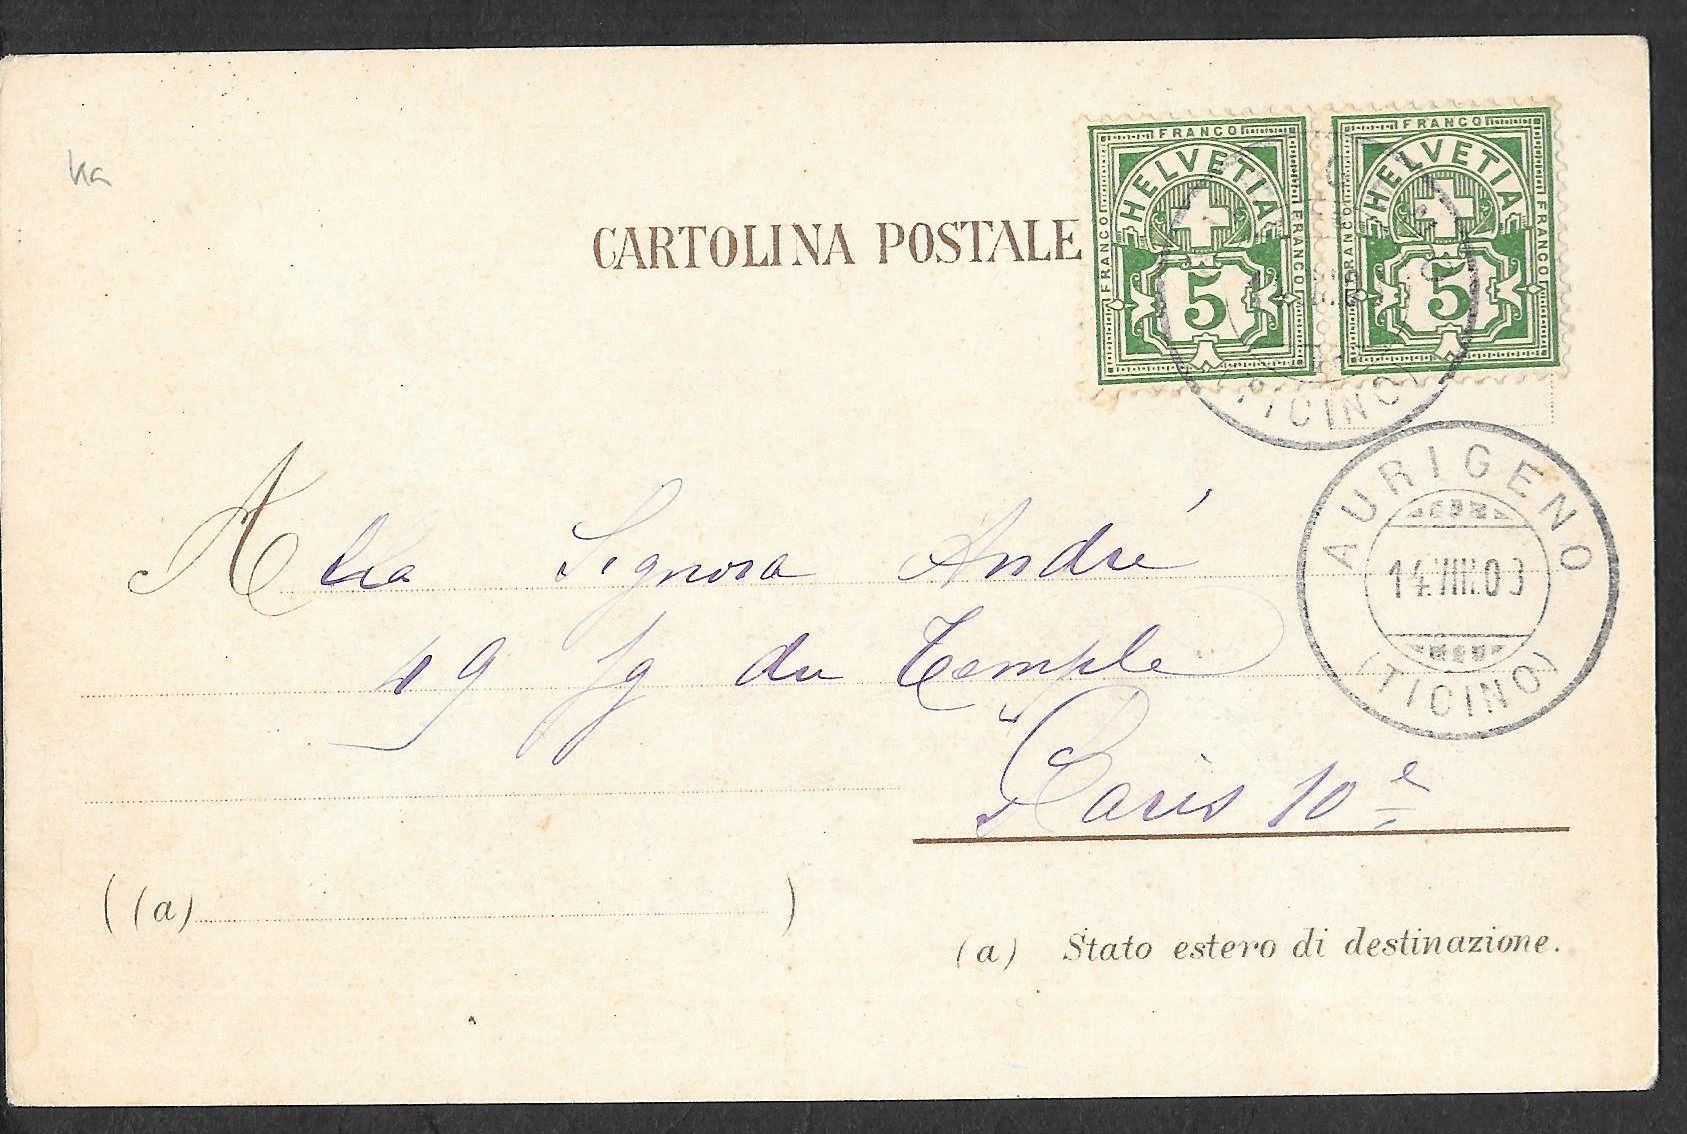 ka
CARTOLINA POSTALE
FRANCO FRANCO
HELVETIA HELVETIA
FRANCO FRANCO FRANCO FRANCO
5 5
(TICINO)
AURIGENO
14.VIII.03
(TICINO)
Alla Signora André
49 fg du Temple
Paris 10e
((a) )
(a) Stato estero di destinazione.